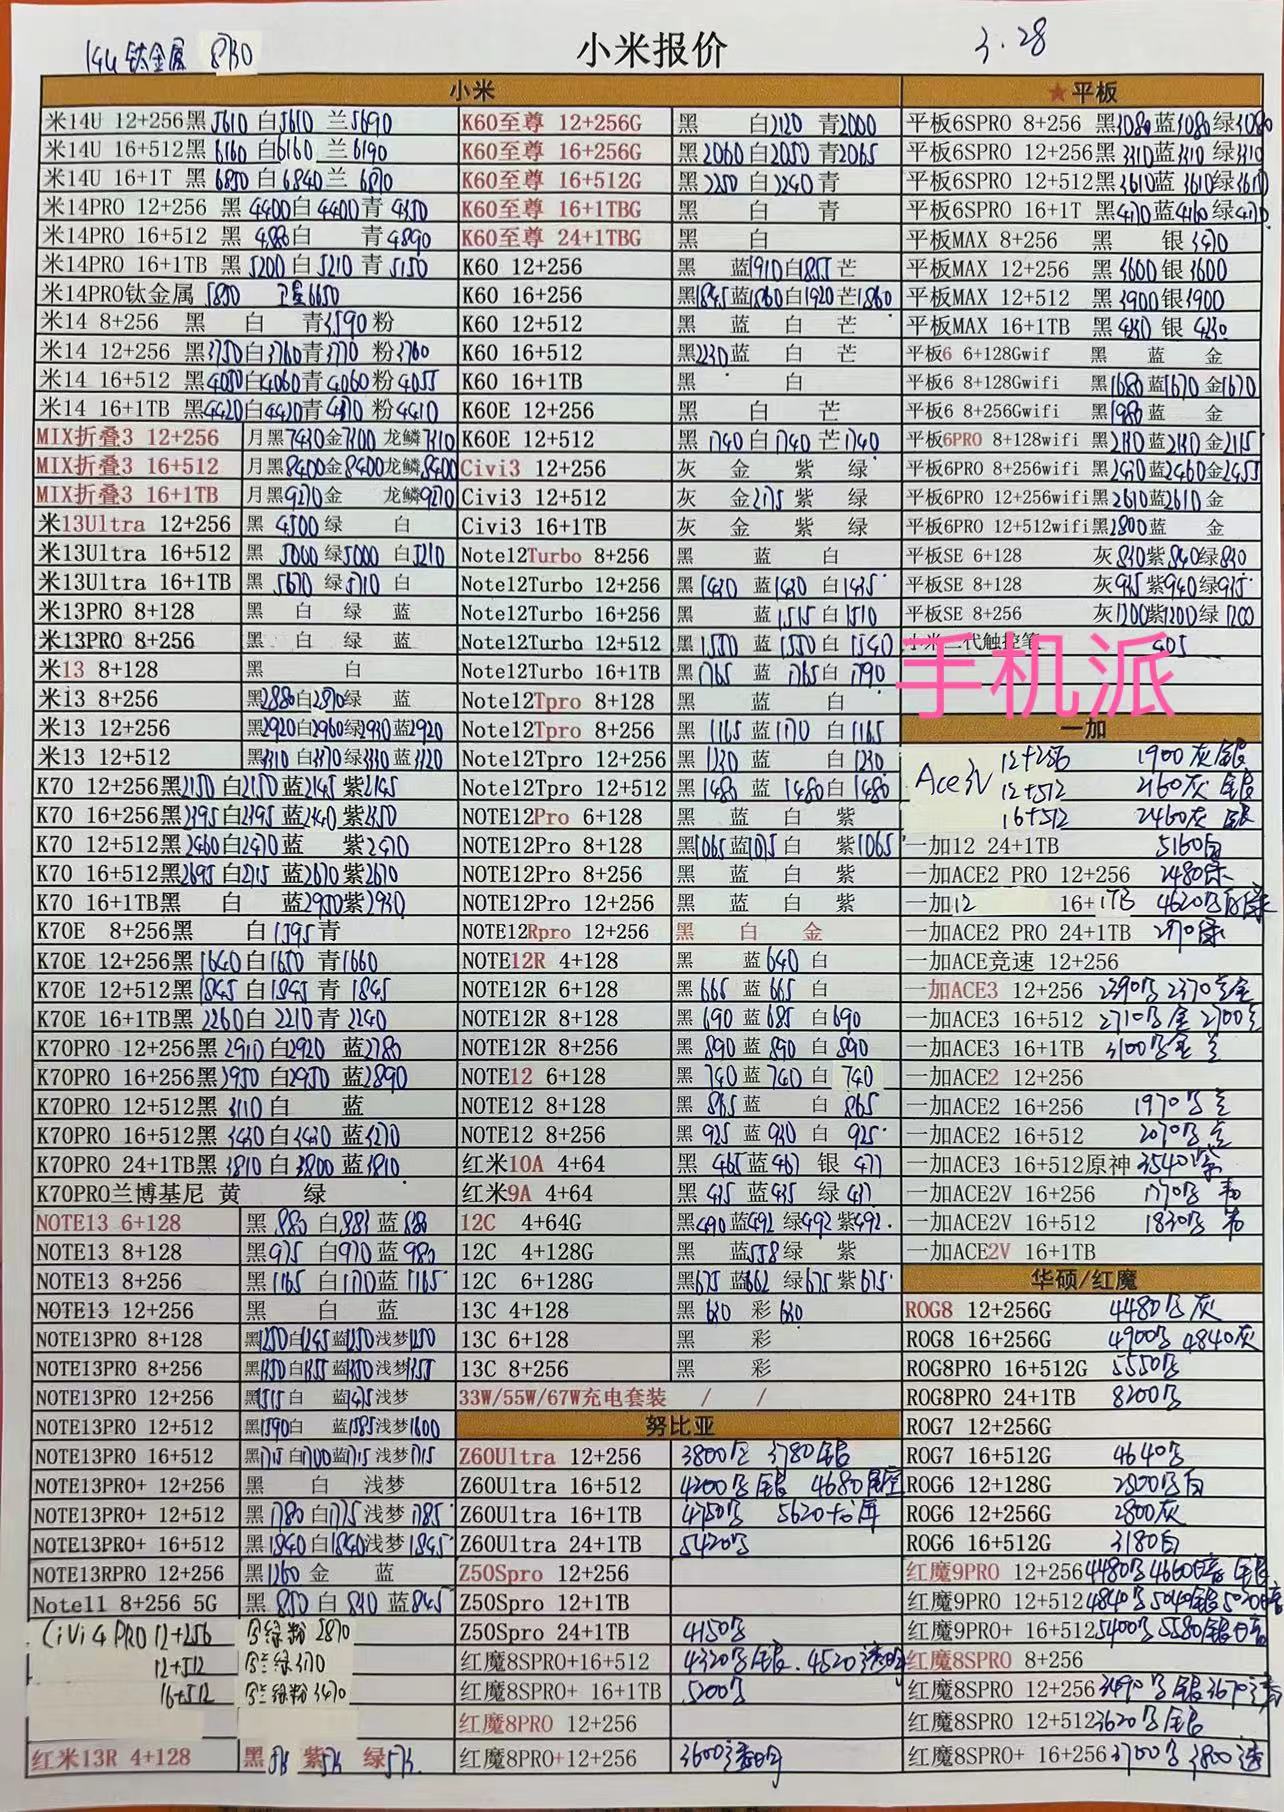 14u 钛金属 8730
小米报价
3.28
小米
米14U 12+256黑5610 白5610 兰5690
米14U 16+512黑6160 白6160 兰6190
米14U 16+1T 黑6850 白6840 兰6870
米14PRO 12+256 黑4400 白4400 青4350
米14PRO 16+512 黑4880 白 青4890
米14PRO 16+1TB 黑5200 白5210 青5150
米14PRO钛金属
米14 8+256 黑 白 青3590 粉
米14 12+256 黑3750 白3760 青3770 粉3760
米14 16+512 黑4050 白4060 青4060 粉4055
米14 16+1TB 黑4420 白4420 青4370 粉4410
MIX折叠3 12+256 月黑7430 金7300 龙鳞7310
MIX折叠3 16+512 月黑8400 金8400 龙鳞8400
MIX折叠3 16+1TB 月黑9270 金 龙鳞9270
米13Ultra 12+256 黑4500 绿 白
米13Ultra 16+512 黑5000 绿5000 白5210
米13Ultra 16+1TB 黑5670 绿5710 白
米13PRO 8+128 黑 白 绿 蓝
米13PRO 8+256 黑 白 绿 蓝
米13 8+128 黑 白
米13 8+256 黑2880 白2870 绿 蓝
米13 12+256 黑2920 白2960 绿2930 蓝2920
米13 12+512 黑3310 白3370 绿3330 蓝3320
K70 12+256黑2150 白2150 蓝2145 紫2145
K70 16+256黑2395 白2395 蓝2340 紫2350
K70 12+512黑2460 白2470 蓝 紫2470
K70 16+512黑2695 白2715 蓝2670 紫2670
K70 16+1TB黑 白 蓝2950 紫2930
K70E 8+256黑 白1595 青
K70E 12+256黑1640 白1650 青1660
K70E 12+512黑1845 白1845 青1845
K70E 16+1TB黑2260 白2210 青2240
K70PRO 12+256黑2910 白2920 蓝2780
K70PRO 16+256黑 白2950 蓝2890
K70PRO 12+512黑3110 白 蓝
K70PRO 16+512黑3430 白3430 蓝3270
K70PRO 24+1TB黑3810 白3800 蓝3810
K70PRO兰博基尼 黄 绿
NOTE13 6+128 黑880 白881 蓝880
NOTE13 8+128 黑975 白970 蓝980
NOTE13 8+256 黑1165 白1170 蓝1165
NOTE13 12+256 黑 白 蓝
NOTE13PRO 8+128 黑1250 白1245 蓝1250 浅梦1250
NOTE13PRO 8+256 黑1350 白1355 蓝1350 浅梦1355
NOTE13PRO 12+256 黑1515 白 蓝1475 浅梦
NOTE13PRO 12+512 黑1590 白 蓝1585 浅梦1600
NOTE13PRO 16+512 黑1715 白1700 蓝1715 浅梦1715
NOTE13PRO+ 12+256 黑 白 浅梦
NOTE13PRO+ 12+512 黑1780 白1775 浅梦1785
NOTE13PRO+ 16+512 黑1840 白1840 浅梦1845
NOTE13RPRO 12+256 黑1260 金 蓝
Note11 8+256 5G 黑850 白840 蓝845
CiVi4 PRO 12+256 绿粉 2870
12+512
16+512
红米13R 4+128 黑 紫 绿
K60至尊 12+256G 黑 白2120 青2000
K60至尊 16+256G 黑2060 白2050 青2065
K60至尊 16+512G 黑2250 白2240 青
K60至尊 16+1TBG 黑 白 青
K60至尊 24+1TBG 黑 白
K60 12+256 黑 蓝1910 白1855 芒
K60 16+256 黑1845 蓝1860 白1920 芒1860
K60 12+512 黑 蓝 白 芒
K60 16+512 黑2230 蓝 白 芒
K60 16+1TB 黑 白
K60E 12+256 黑 白 芒
K60E 12+512 黑1740 白1740 芒1740
Civi3 12+256 灰 金 紫 绿
Civi3 12+512 灰 金2175 紫 绿
Civi3 16+1TB 灰 金 紫 绿
Note12Turbo 8+256 黑 蓝 白
Note12Turbo 12+256 黑1430 蓝1430 白1435
Note12Turbo 16+256 黑 蓝1515 白1510
Note12Turbo 12+512 黑1550 蓝1550 白1540
Note12Turbo 16+1TB 黑1765 蓝1765 白1790
Note12Tpro 8+128 黑 蓝 白
Note12Tpro 8+256 黑1165 蓝1170 白1165
Note12Tpro 12+256 黑1230 蓝 白1230
Note12Tpro 12+512 黑1480 蓝1480 白1480
NOTE12Pro 6+128 黑 蓝 白 紫
NOTE12Pro 8+128 黑1065 蓝1075 白 紫1065
NOTE12Pro 8+256 黑 蓝 白 紫
NOTE12Pro 12+256 黑 蓝 白 紫
NOTE12Rpro 12+256 黑 白 金
NOTE12R 4+128 黑 蓝640 白
NOTE12R 6+128 黑665 蓝665 白
NOTE12R 8+128 黑690 蓝685 白690
NOTE12R 8+256 黑890 蓝890 白890
NOTE12 6+128 黑740 蓝740 白740
NOTE12 8+128 黑865 蓝 白865
NOTE12 8+256 黑925 蓝930 白925
红米10A 4+64 黑465 蓝467 银477
红米9A 4+64 黑435 蓝435 绿437
12C 4+64G 黑490 蓝492 绿492 紫492
12C 4+128G 黑 蓝558 绿 紫
12C 6+128G 黑675 蓝662 绿675 紫675
13C 4+128 黑630 彩630
13C 6+128 黑 彩
13C 8+256 黑 彩
33W/55W/67W充电套装 / /
努比亚
Z60Ultra 12+256 3780银
Z60Ultra 16+512 4200 银 4680星空
Z60Ultra 16+1TB 4750 5620
Z60Ultra 24+1TB 5420
Z50Spro 12+256
Z50Spro 12+1TB
Z50Spro 24+1TB 4150
红魔8SPRO+16+512 4320 银 4520透明
红魔8SPRO+ 16+1TB 5200
红魔8PRO 12+256
红魔8PRO+12+256 3600透明
★平板
平板6SPRO 8+256 黑3080 蓝3080 绿3080
平板6SPRO 12+256黑3310 蓝3310 绿3310
平板6SPRO 12+512黑3610 蓝3610 绿3610
平板6SPRO 16+1T 黑4170 蓝4160 绿4170
平板MAX 8+256 黑 银3470
平板MAX 12+256 黑3600 银3600
平板MAX 12+512 黑3900 银3900
平板MAX 16+1TB 黑4230 银4230
平板6 6+128Gwif 黑 蓝 金
平板6 8+128Gwifi 黑1680 蓝1670 金1670
平板6 8+256Gwifi 黑1980 蓝 金
平板6PRO 8+128wifi 黑2130 蓝2130 金2115
平板6PRO 8+256wifi 黑2430 蓝2460 金2455
平板6PRO 12+256wifi黑2610 蓝2610 金
平板6PRO 12+512wifi黑2800 蓝 金
平板SE 6+128 灰830 紫840 绿830
平板SE 8+128 灰935 紫940 绿935
平板SE 8+256 灰1200 紫1200 绿1200
小米二代触控笔 405
手机派
一加
Ace3V 12+256 1900灰银
12+512 2160灰 银
16+512 2460灰 银
一加12 24+1TB 5160白
一加ACE2 PRO 12+256 2480绿
一加12 16+1TB 4620
一加ACE2 PRO 24+1TB 绿
一加ACE竞速 12+256
一加ACE3 12+256 2390 2370
一加ACE3 16+512 2710 2700
一加ACE3 16+1TB 3100
一加ACE2 12+256
一加ACE2 16+256 1970
一加ACE2 16+512 2070
一加ACE3 16+512原神 3540
一加ACE2V 16+256 1770
一加ACE2V 16+512 1830
一加ACE2V 16+1TB
华硕/红魔
ROG8 12+256G 4480 灰
ROG8 16+256G 4900 4840灰
ROG8PRO 16+512G 5550
ROG8PRO 24+1TB 8200
ROG7 12+256G
ROG7 16+512G 4640
ROG6 12+128G 白
ROG6 12+256G 2800灰
ROG6 16+512G 3180白
红魔9PRO 12+256 4480 4660 银
红魔9PRO 12+512 4840 5040银
红魔9PRO+ 16+512 5400 5580银
红魔8SPRO 8+256
红魔8SPRO 12+256 3490 银3670透
红魔8SPRO 12+512 3620 银
红魔8SPRO+ 16+256 3700 3800透